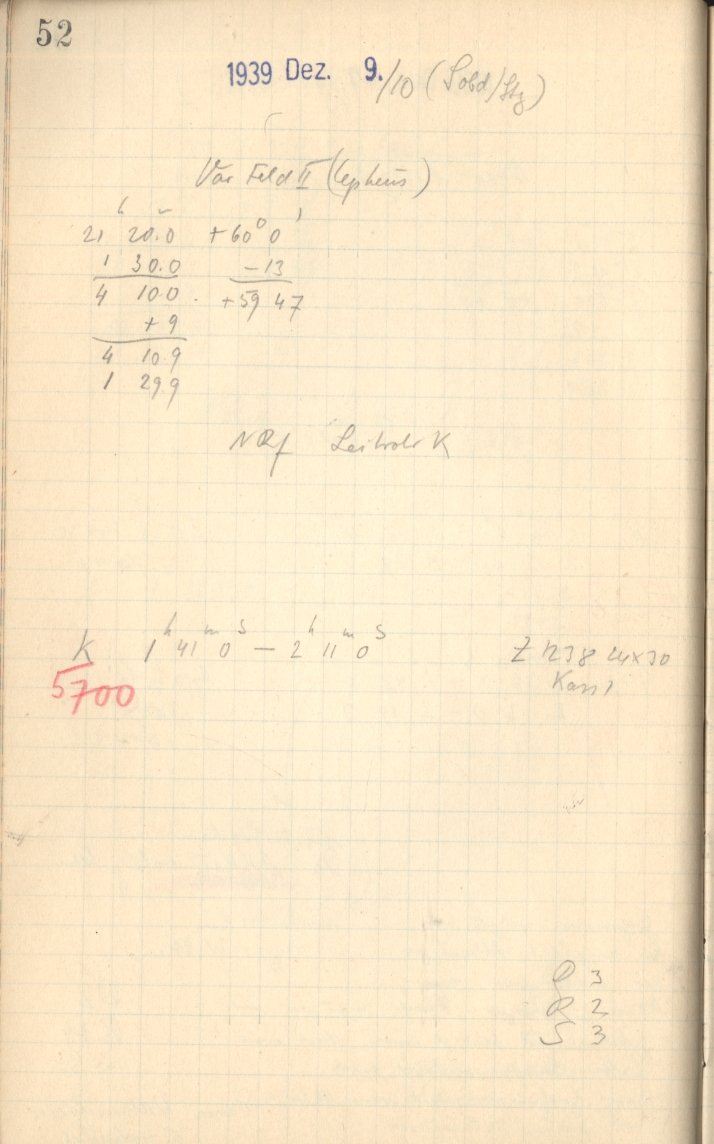 52
1939 Dez. 9./10 (Sobd/Stg)
Var Feld II (Cepheus)
h m
21 20.0 +60° 0'
1 30.0 -13
4 10.0 . +59 47
+9
4 10.9
1 29.9
Leitrohr K
K 1h 41m 0s — 2h 11m 0s Z 1238 24x30
5700 Kass 1
3
R 2
S 3